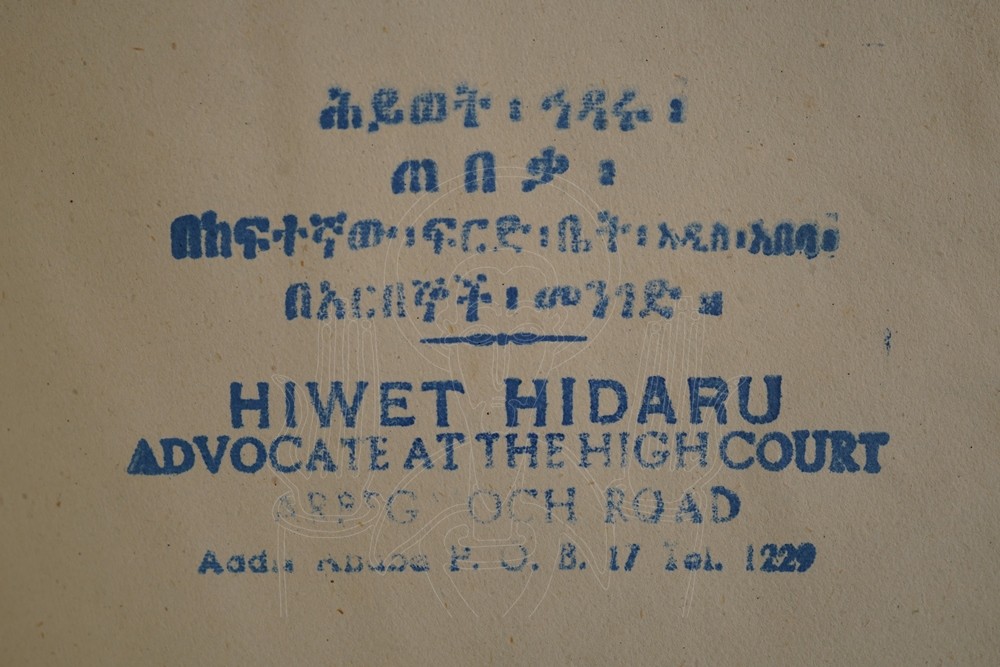 ሕይወት፡ ኅዳሩ፡
ጠበቃ፡
በከፍተኛው፡ፍርድ፡ቤት፡አዲስ፡አበባ፡
በአርበኞች፡ መንገድ።
HIWET HIDARU
ADVOCATE AT THE HIGH COURT
ROAD
Addis Ababa P. O. B. 17 Tel. 1229